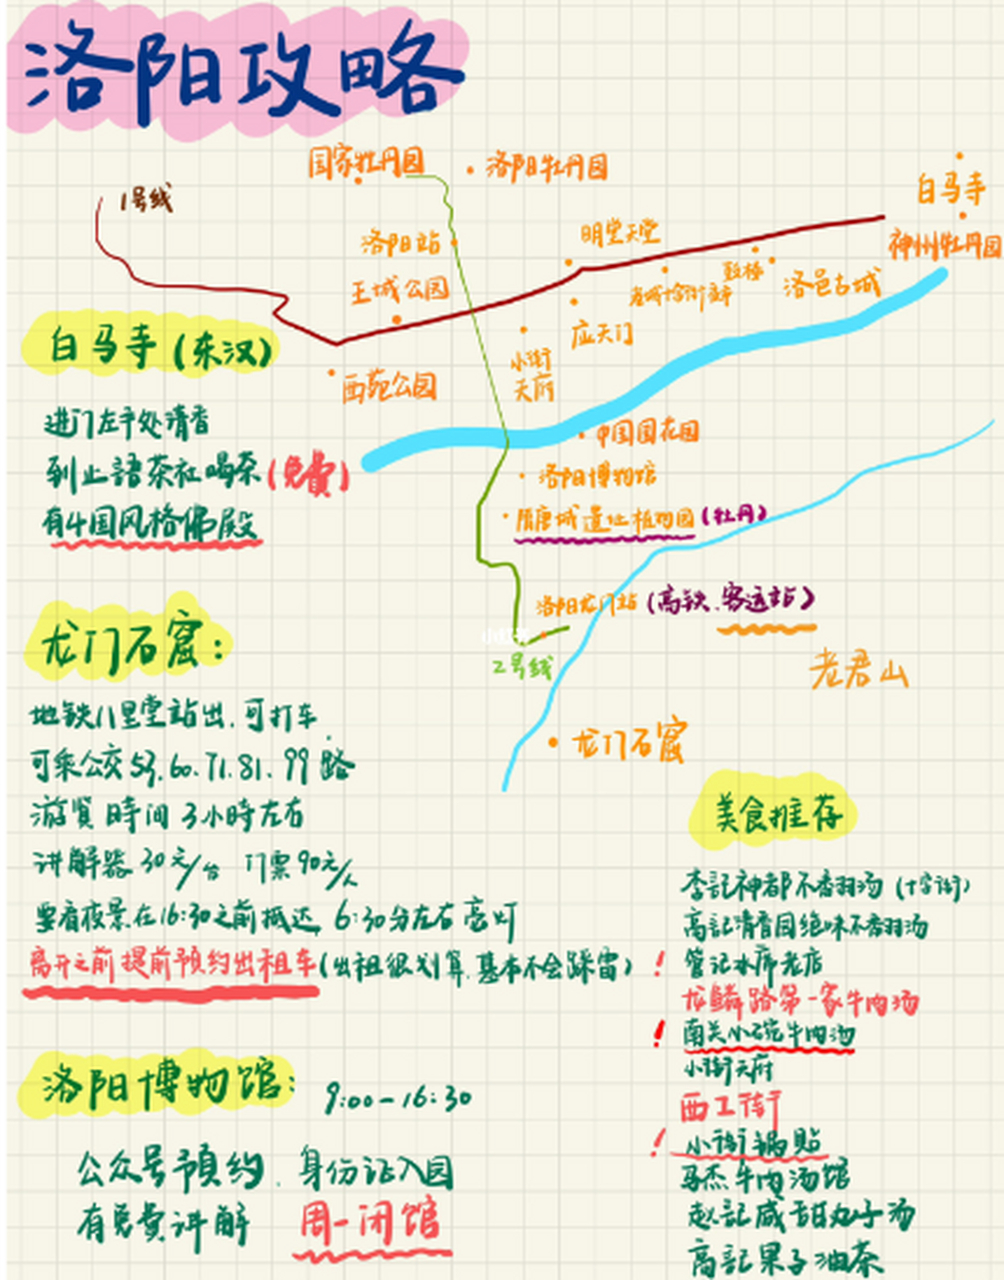 洛阳攻略
国家牡丹园
洛阳牡丹园
白马寺
1号线
洛阳站
明堂天堂
神州牡丹园
王城公园
鼓楼
老城十字街
洛邑古城
应天门
小街
天府
西苑公园
中国国花园
洛阳博物馆
隋唐城遗址植物园(牡丹)
洛阳龙门站(高铁.客运站)
2号线
老君山
龙门石窟
白马寺(东汉)
进门左手处请香
到止語茶社喝茶(免費)
有4国风格佛殿
龙门石窟:
地铁八里堂站出.可打车.
可乘公交53.60.71.81.99路
游览時间3小時左右
讲解器30元/台 门票90元/人
要看夜景在16:30之前抵达,6:30分左右亮灯
离开之前提前预约出租车(出租很划算,基本不会踩雷)
洛阳博物馆: 9:00-16:30
公众号预约.身份证入园
有免費讲解 周一闭馆
美食推荐
李記神都不翻汤(十字街)
高記清香园绝味不翻汤
! 管记水席老店
龙鳞路第一家牛肉汤
! 南关小碗牛肉汤
小街天府
西工街
! 小街锅贴
马杰牛肉汤馆
赵記咸甜丸子汤
高記果子油茶